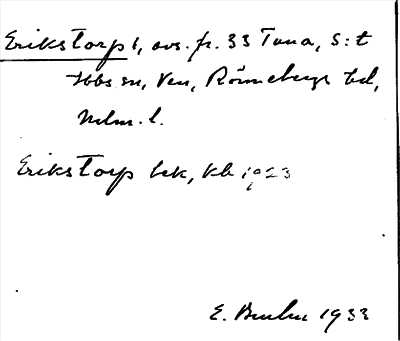 Erikstorp 1, avs. fr. 33 Tuna, S:t
Ibbs sn, Ven, Rönnebergs hd,
Mlm. l.
Erikstorp bek, kb 1923
E. 1933